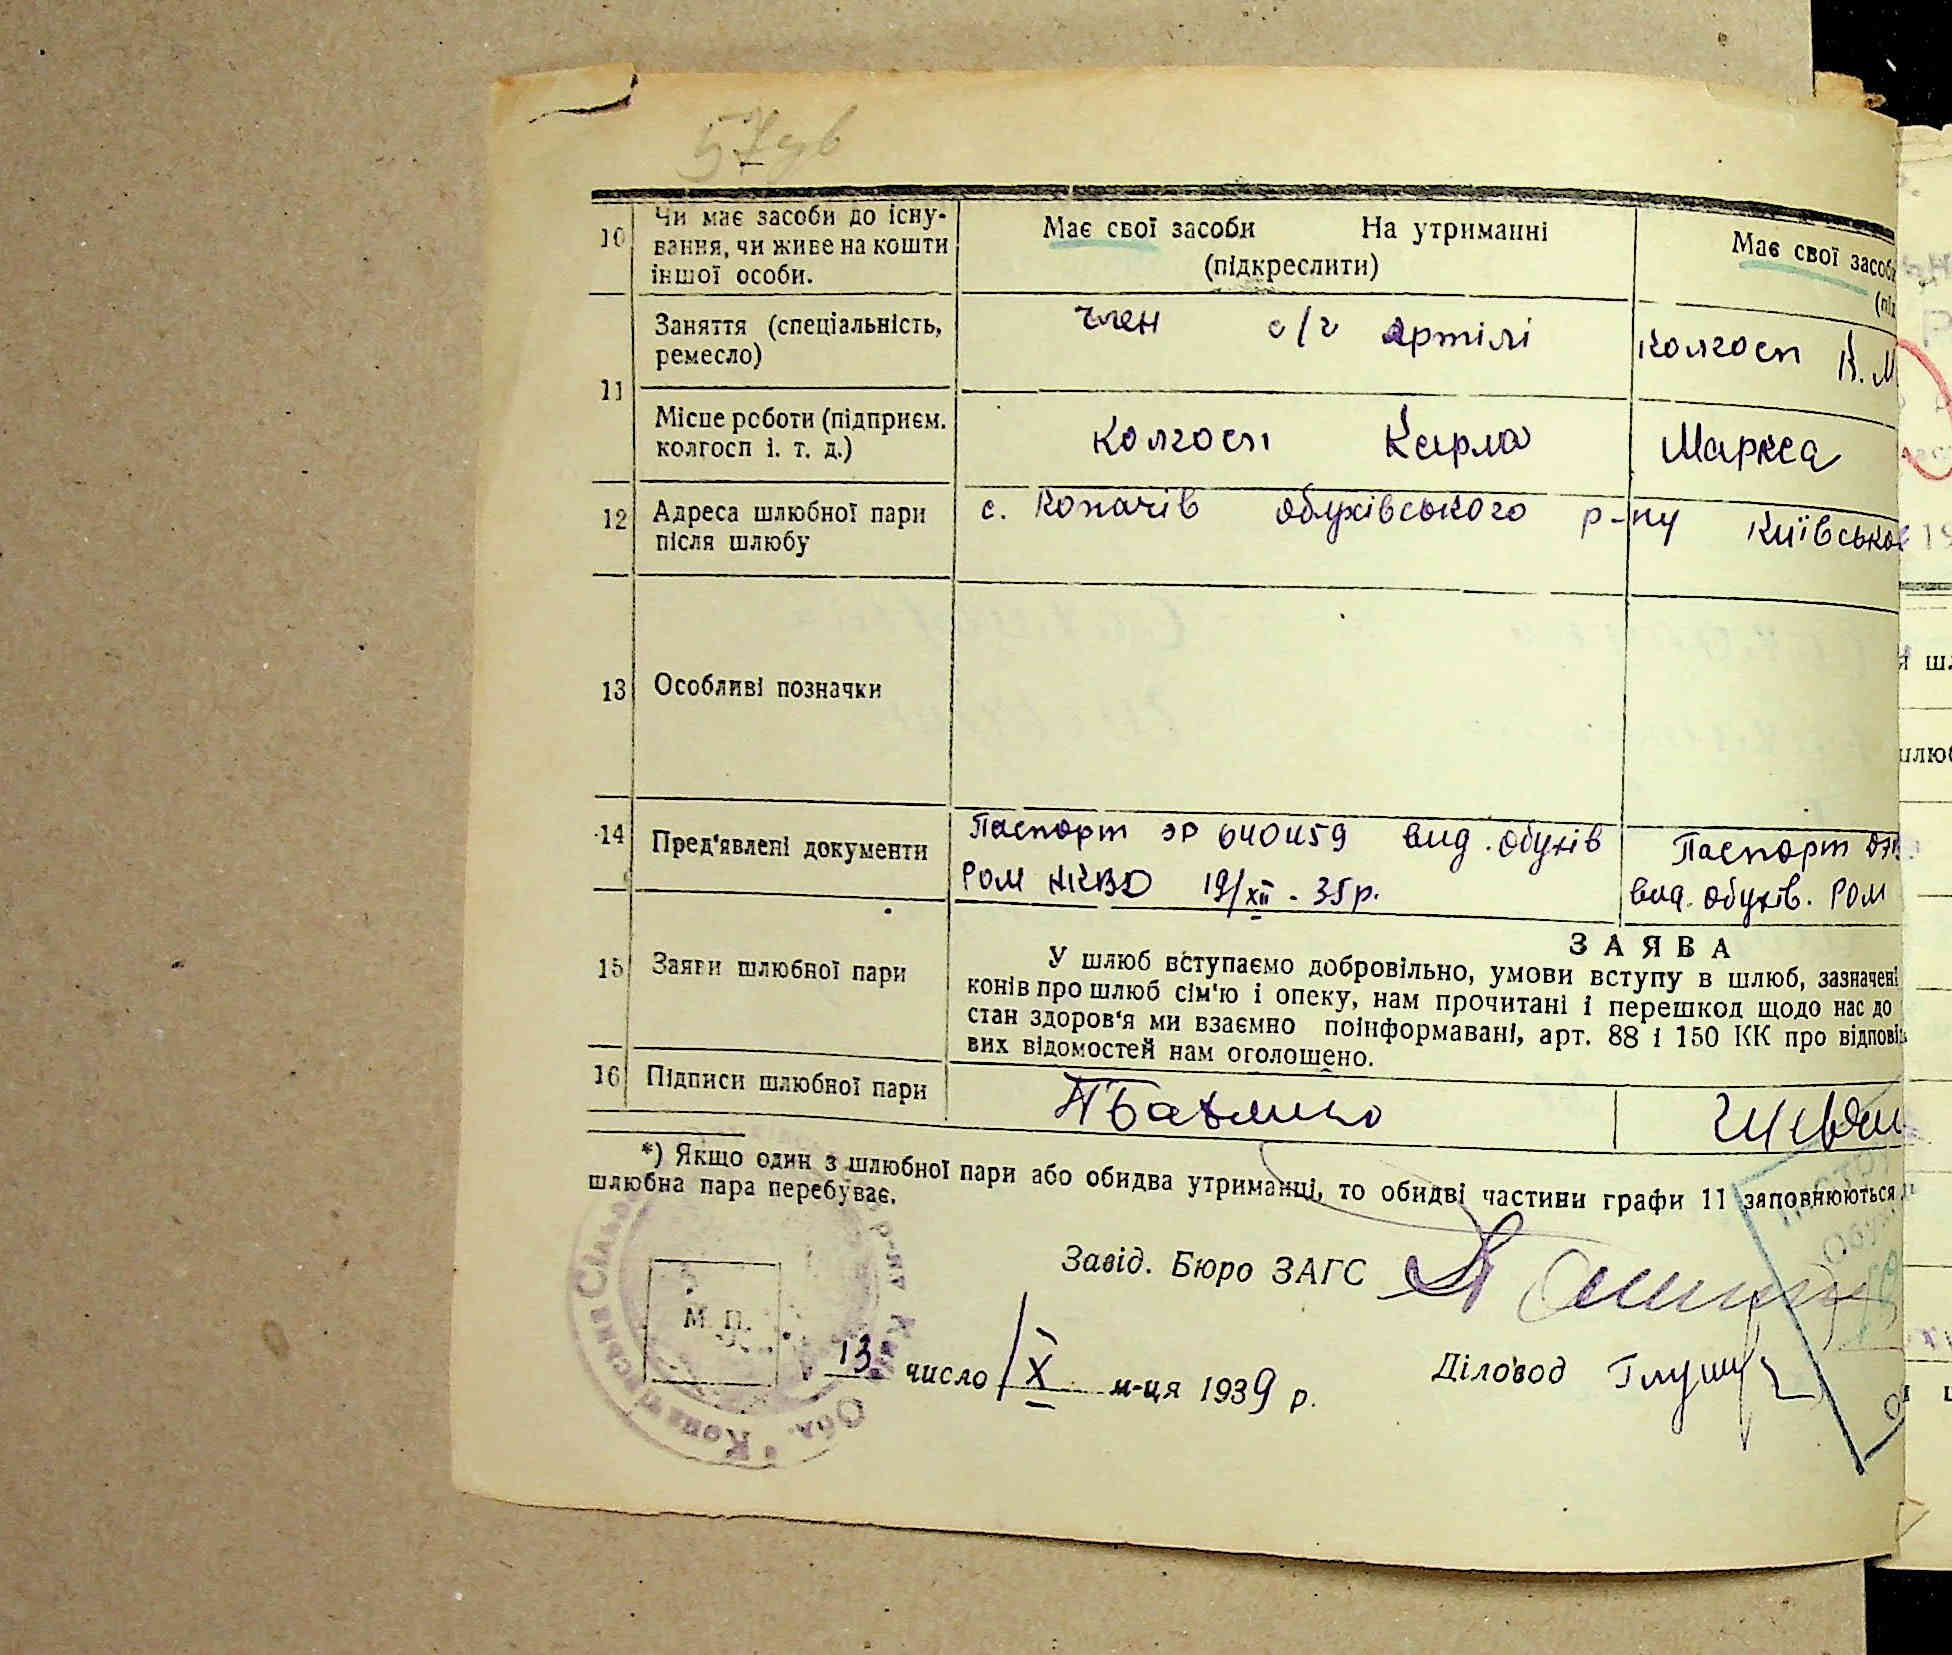 57зв
10 Чи має засоби до існу-
вання, чи живе на кошти
іншої особи.
Має свої засоби На утриманні
(підкреслити)
Має свої засоби
11 Заняття (спеціальність,
ремесло)
член с/г артілі
колгосп К. М
Місце роботи (підприєм.
колгосп і. т. д.)
Колгосп Карла Маркса
12 Адреса шлюбної пари
після шлюбу
с. Копачів Обухівського р-ну Київської
13 Особливі позначки
14 Пред'явлені документи
Паспорт ЭР 640459 вид. Обухів
РОМ НКВД 19/XII - 35р.
Паспорт
вид. Обухів. РОМ
15 Заяви шлюбної пари
ЗАЯВА
У шлюб вступаємо добровільно, умови вступу в шлюб, зазначені
конів про шлюб сім'ю і опеку, нам прочитані і перешкод щодо нас до
стан здоров'я ми взаємно поінформавані, арт. 88 і 150 КК про відпові
вих відомостей нам оголошено.
16 Підписи шлюбної пари
*) Якщо один з шлюбної пари або обидва утриманці, то обидві частини графи 11 заповнюються
шлюбна пара перебуває.
Завід. Бюро ЗАГС
М. П.
13 число X м-ця 1939 р.
Діловод